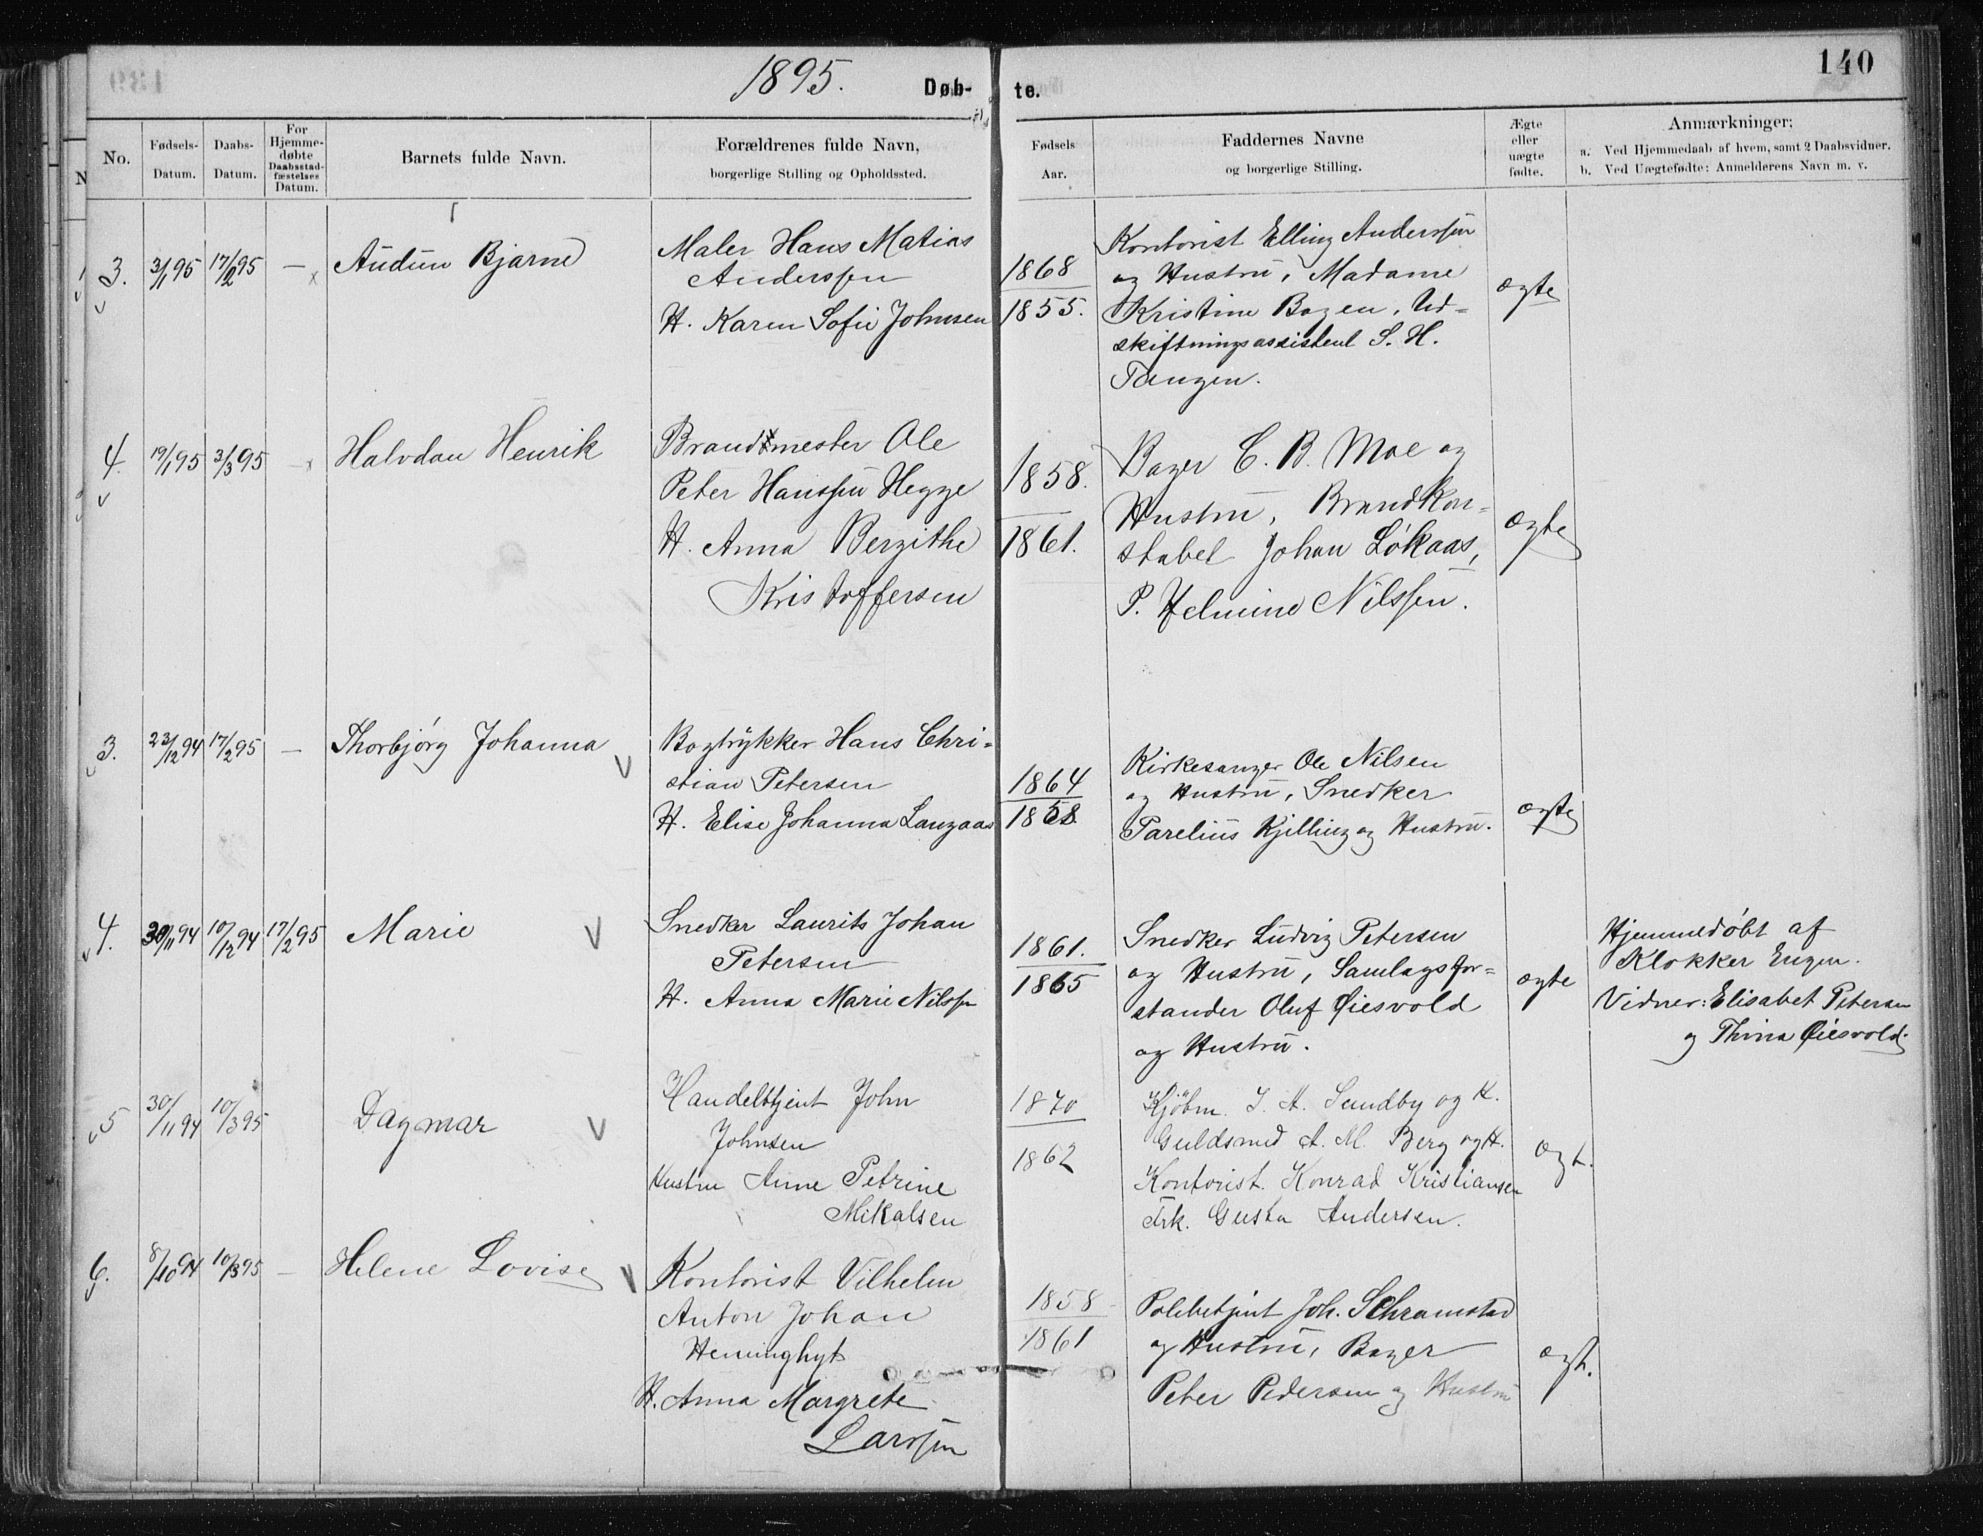 1895.
Døb-
te.
140
No.
Fødsels-
Datum.
Daabs-
Datum.
For
Hjemme-
døbte
Daabsstad-
fæstelses
Datum.
Barnets fulde Navn.
Forældrenes fulde Navn,
borgerlige Stilling og Opholdssted.
Fødsels
Aar.
Faddernes Navne
og borgerlige Stilling.
Ægte
eller
uægte
fødte.
Anmærkninger;
a. Ved Hjemmedaab af hvem, samt 2 Daabsvidner.
b. Ved Uægtefødte: Anmelderens Navn m. v.
3. 3/1 95 17/2 95 — Audun Bjarne
Maler Hans Matias
Anderssen
H. Karen Sofie Johnsen
1868
1855.
Kontorist Elling Anderssen
og Hustru, Madame
Kristine Bogen, Ud-
skiftningsassistent S. H.
Tangen.
ægte
4. 19/1 95 3/3 95 — Halvdan Henrik
Brandmester Ole
Peter Hanssen Hegge
H. Anna Bergithe
Kristoffersen
1858.
1861.
Bager C. B. Moe og
Hustru, Brandkon-
stabel Johan Løkaas,
P. Helmine Nilssen.
ægte
3. 23/12 94 17/2 95 — Thorbjørg Johanna V
Bogtrykker Hans Chri-
stian Petersen
H. Elise Johanna Langaas
1864
1858
Kirkesanger Ole Nilsen
og Hustru, Snedker
Parelius Kjelling og Hustru.
ægte
4. 30/11 94 10/12 94 17/2 95 Marie V
Snedker Laurits Johan
Petersen
H. Anna Marie Nilssen
1861.
1865
Snedker Ludvig Petersen
og Hustru, Samlagsfor-
stander Oluf Øiesvold
og Hustru.
ægte
Hjemmedøbt af
Klokker Engen.
Vidner: Elisabet Petersen
og Thina Øiesvold.
5 30/11 94 10/3 95 Dagmar V
Handelsbtjent John
Johnsen
Hustru Anne Petrine
Mikalsen
1870
1862
Kjøbm. I. A. Sundby og H.
Guldsmed A. M. Berg og H.
Kontorist. Konrad Kristiansen
Frk. Gusta Andersen.
ægt.
6. 8/10 94 10/3 95 — Helene Lovise V
Kontorist Vilhelm
Anton Johan
Heminghyt
H. Anna Margrete
Larssen
1858
1861
Politibetjent Joh. Schramstad
og Hustru, Bager
Peter Pedersen og Hustru
ægt.